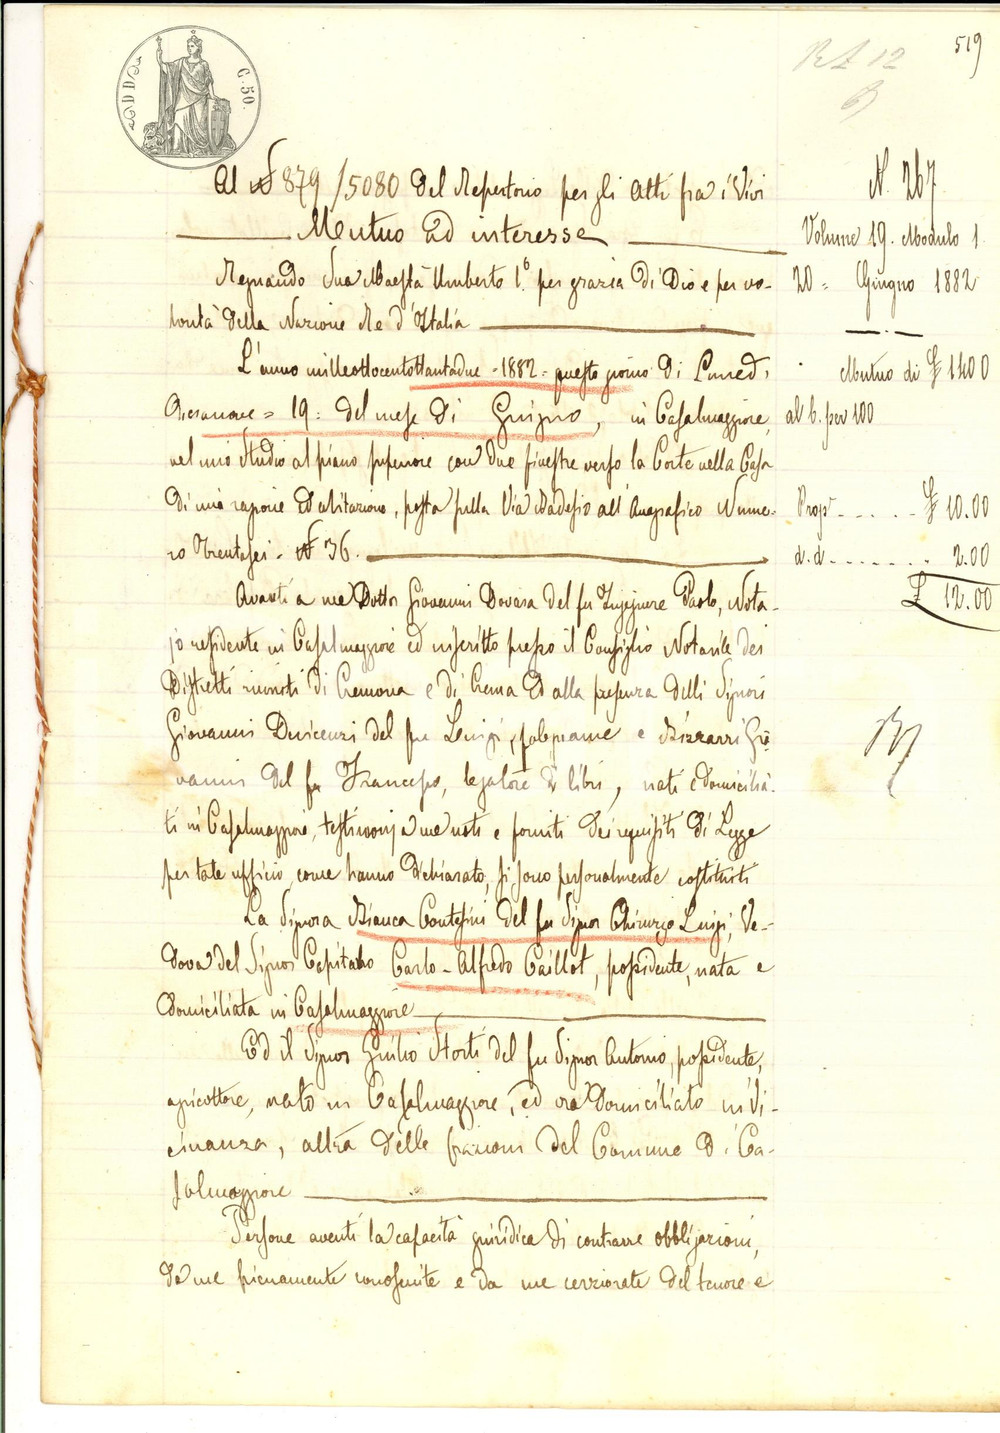 DDA
C. 50.
519
Al N 879/5080 del Repertorio per gli Atti fra i Vivi
N. 267
Mutuo ad interesse
Volume 19. Modulo 1
Regnando Sua Maestà Umberto I.° per grazia di Dio e per vo-
20 = Giugno 1882
lontà della Nazione Re d'Italia
L'anno milleottocentottantadue - 1882 - questo giorno di Lunedì
Mutuo di £ 1400
Diecinove = 19 = del mese di Giugno, in Casalmaggiore,
al 6. per 100
nel mio Studio al piano superiore con due finestre verso la Corte nella Casa
di mia ragione ed abitazione, posta sulla Via Badesio all'Anagrafico Nume-
Prop.
£ 10.00
ro Trentasei - N 36.
d.d
2.00
£ 12.00
Avanti a me Dottor Giovanni Dovara del fu Ingegnere Paolo, Nota-
jo residente in Casalmaggiore ed inscritto presso il Consiglio Notarile dei
Distretti riuniti di Cremona e di Crema ed alla presenza delli Signori
Giovanni Devicenzi del fu Luigi, falegname e Bizzarri Gio-
vanni del fu Francesco, legatore di libri, nati e domicilia-
ti in Casalmaggiore, testimonj a me noti e forniti dei requisiti di Legge
per tale ufficio, come hanno dichiarato, si sono personalmente costituiti
La Signora Bianca Contesini del fu Signor Chirurgo Luigi, Ve-
dova del Signor Capitano Carlo-Alfredo Caillot, possidente, nata e
domiciliata in Casalmaggiore
Ed il Signor Giulio Storti del fu Signor Antonio, possidente,
agricoltore, nato in Casalmaggiore, ed ora domiciliato in Vi-
cinanza, altra delle frazioni del Comune di Ca-
salmaggiore
Persone aventi la capacità giuridica di contrarre obbligazioni,
da me pienamente conosciute e da me cerziorate del tenore e